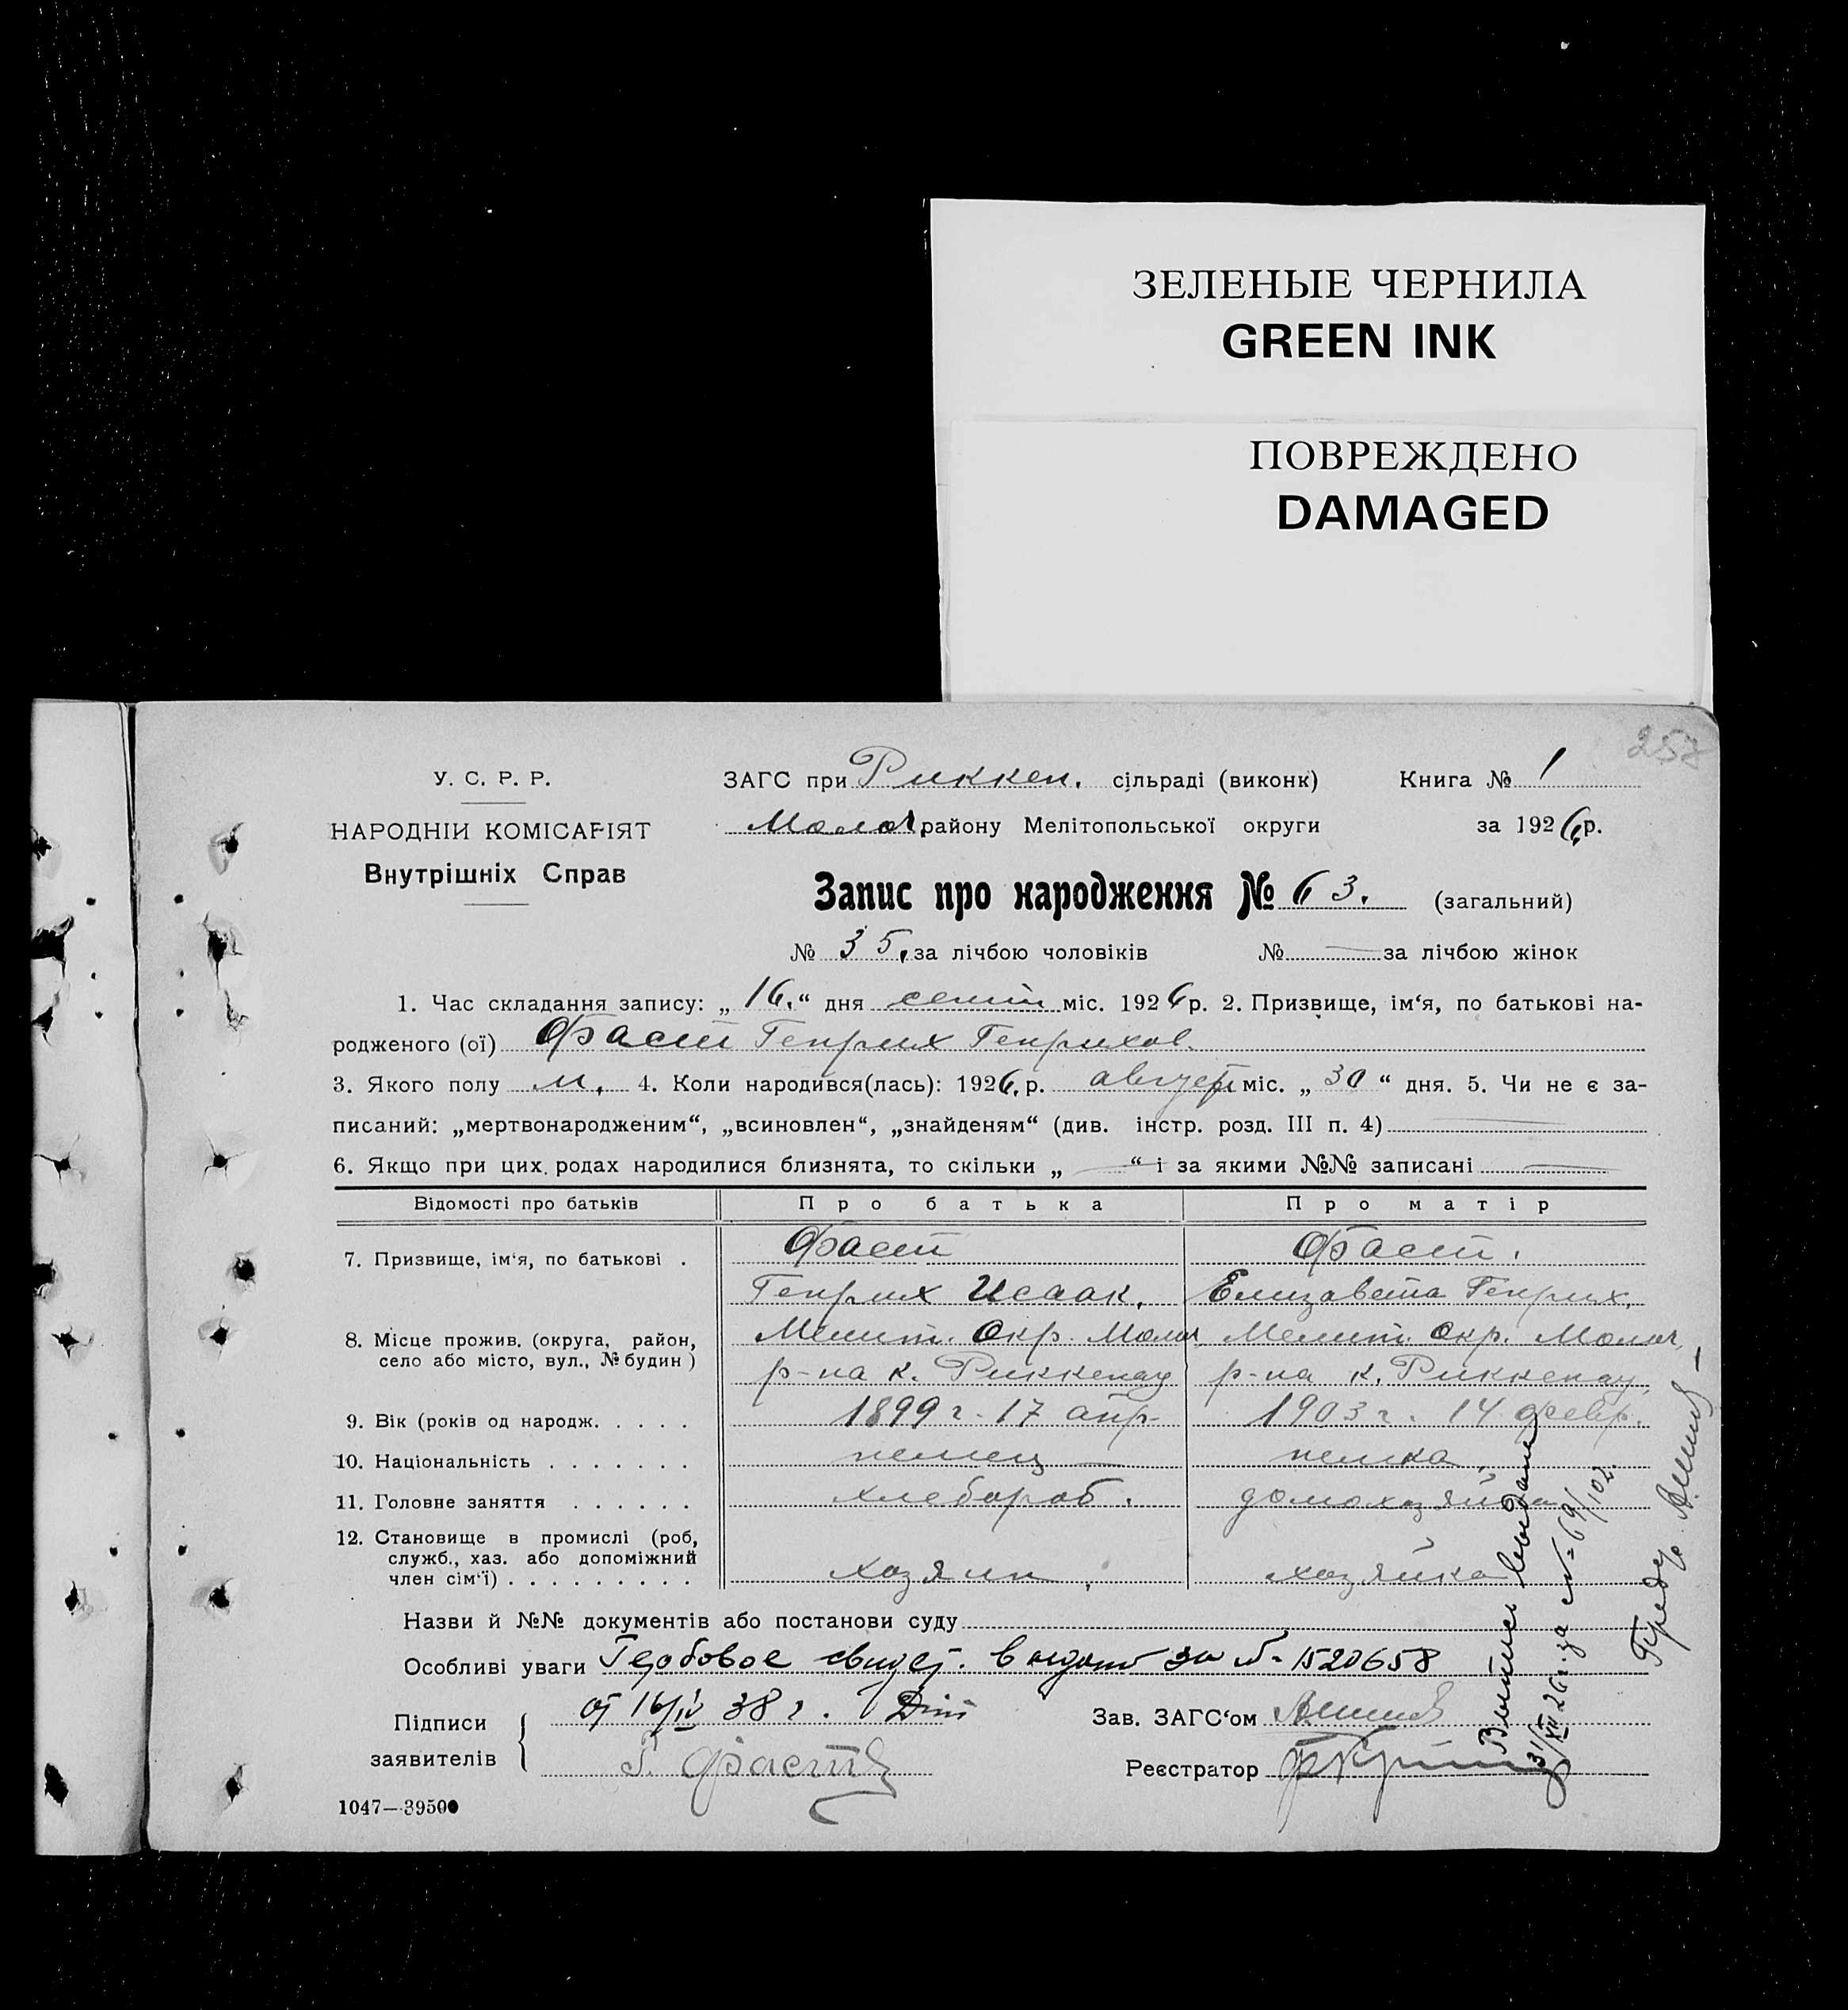 ЗЕЛЕНЫЕ ЧЕРНИЛА
GREEN INK
ПОВРЕЖДЕНО
DAMAGED
257
У. С. Р. Р.
НАРОДНІЙ КОМІСАРІЯТ
Внутрішніх Справ
ЗАГС при Риккен. сільраді (виконк) Книга № 1
Молоч. району Мелітопольської округи за 1926 р.
Запис про народження № 63. (загальний)
№ 35. за лічбою чоловіків № — за лічбою жінок
1. Час складання запису: „16.“ дня сент. міс. 1926 р. 2. Призвище, ім‘я, по батькові на-
родженого (ої) Фаст Генрих Генрихов.
3. Якого полу м. 4. Коли народився(лась): 1926. р. август міс. „30“ дня. 5. Чи не є за-
писаний: „мертвонародженим“, „всиновлен“, „знайденям“ (див. інстр. розд. III п. 4) —
6. Якщо при цих родах народилися близнята, то скільки „—“ і за якими №№ записані —
Відомості про батьків Про батька Про матір
7. Призвище, ім‘я, по батькові . Фаст Фаст.
Генрих Исаак. Елизавета Генрих.
8. Місце прожив. (округа, район, Мелит. Окр. Молоч. Мелит. Окр. Молоч.
село або місто, вул., № будин) р-на к. Риккенау р-на к. Риккенау.
9. Вік (років од народж. . . . . 1899 г. 17 апр. 1903 г. 14 февр.
10. Національність . . . . . . . немец немка
11. Головне заняття . . . . . . хлебороб. домохозяйка
12. Становище в промислі (роб,
служб., хаз. або допоміжний
член сім‘ї) . . . . . . . . . хозяин, хозяйка
Назви й №№ документів або постанови суду
Особливі уваги Гербовое свидет. выдано за № 1520658
от 16/IV 38 г.
Підписи
заявителів Г. Фаст
Зав. ЗАГС‘ом
Реєстратор
1047—39500
Выпись выдана
31/XII 26 г. за № 69/102.
Предс.